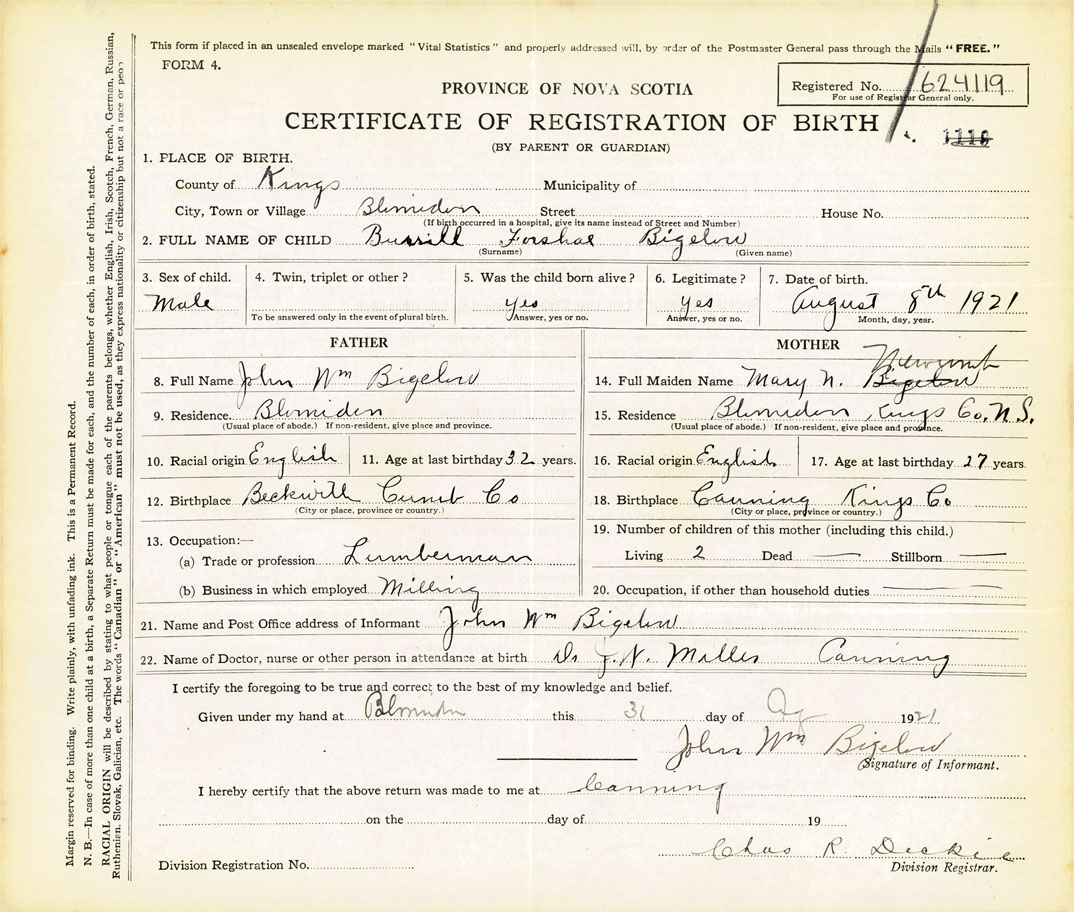 This form if placed in an unsealed envelope marked "Vital Statistics" and properly addressed will, by order of the Postmaster General pass through the Mails "FREE."
FORM 4.
Registered No. 624119
For use of Registrar General only.
PROVINCE OF NOVA SCOTIA
CERTIFICATE OF REGISTRATION OF BIRTH
1116
(BY PARENT OR GUARDIAN)
1. PLACE OF BIRTH.
County of Kings Municipality of
City, Town or Village Blomidon Street House No.
(If birth occurred in a hospital, give its name instead of Street and Number)
2. FULL NAME OF CHILD Burrill Forshae Bigelow
(Surname) (Given name)
3. Sex of child. 4. Twin, triplet or other? 5. Was the child born alive? 6. Legitimate? 7. Date of birth.
Male yes yes August 8th 1921
To be answered only in the event of plural birth. Answer, yes or no. Answer, yes or no. Month, day, year.
FATHER
8. Full Name John Wm Bigelow
9. Residence. Blomidon
(Usual place of abode.) If non-resident, give place and province.
10. Racial origin English 11. Age at last birthday 32 years.
12. Birthplace Beckwith Cumb Co
(City or place, province or country.)
13. Occupation:—
(a) Trade or profession Lumberman
(b) Business in which employed Milling
MOTHER
Newcomb
14. Full Maiden Name Mary N. Bigelow
15. Residence Blomidon Kings Co, N.S.
(Usual place of abode.) If non-resident, give place and province.
16. Racial origin English 17. Age at last birthday 27 years.
18. Birthplace Canning Kings Co
(City or place, province or country.)
19. Number of children of this mother (including this child.)
Living 2 Dead — Stillborn —
20. Occupation, if other than household duties —
21. Name and Post Office address of Informant John Wm Bigelow
22. Name of Doctor, nurse or other person in attendance at birth Dr J. N. Miller Canning
I certify the foregoing to be true and correct to the best of my knowledge and belief.
Given under my hand at Blomidon this 31 day of Ag 1921
John Wm Bigelow
Signature of Informant.
I hereby certify that the above return was made to me at Canning
on the day of 19
Chas R. Dickie
Division Registration No. Division Registrar.
Margin reserved for binding. Write plainly, with unfading ink. This is a Permanent Record.
N. B.—In case of more than one child at a birth, a Separate Return must be made for each, and the number of each, in order of birth, stated.
RACIAL ORIGIN will be described by stating to what people or tongue each of the parents belongs, whether English, Irish, Scotch, French, German, Russian,
Ruthenian, Slovak, Galician, etc. The words "Canadian" or "American" must not be used, as they express nationality or citizenship but not a race or peop